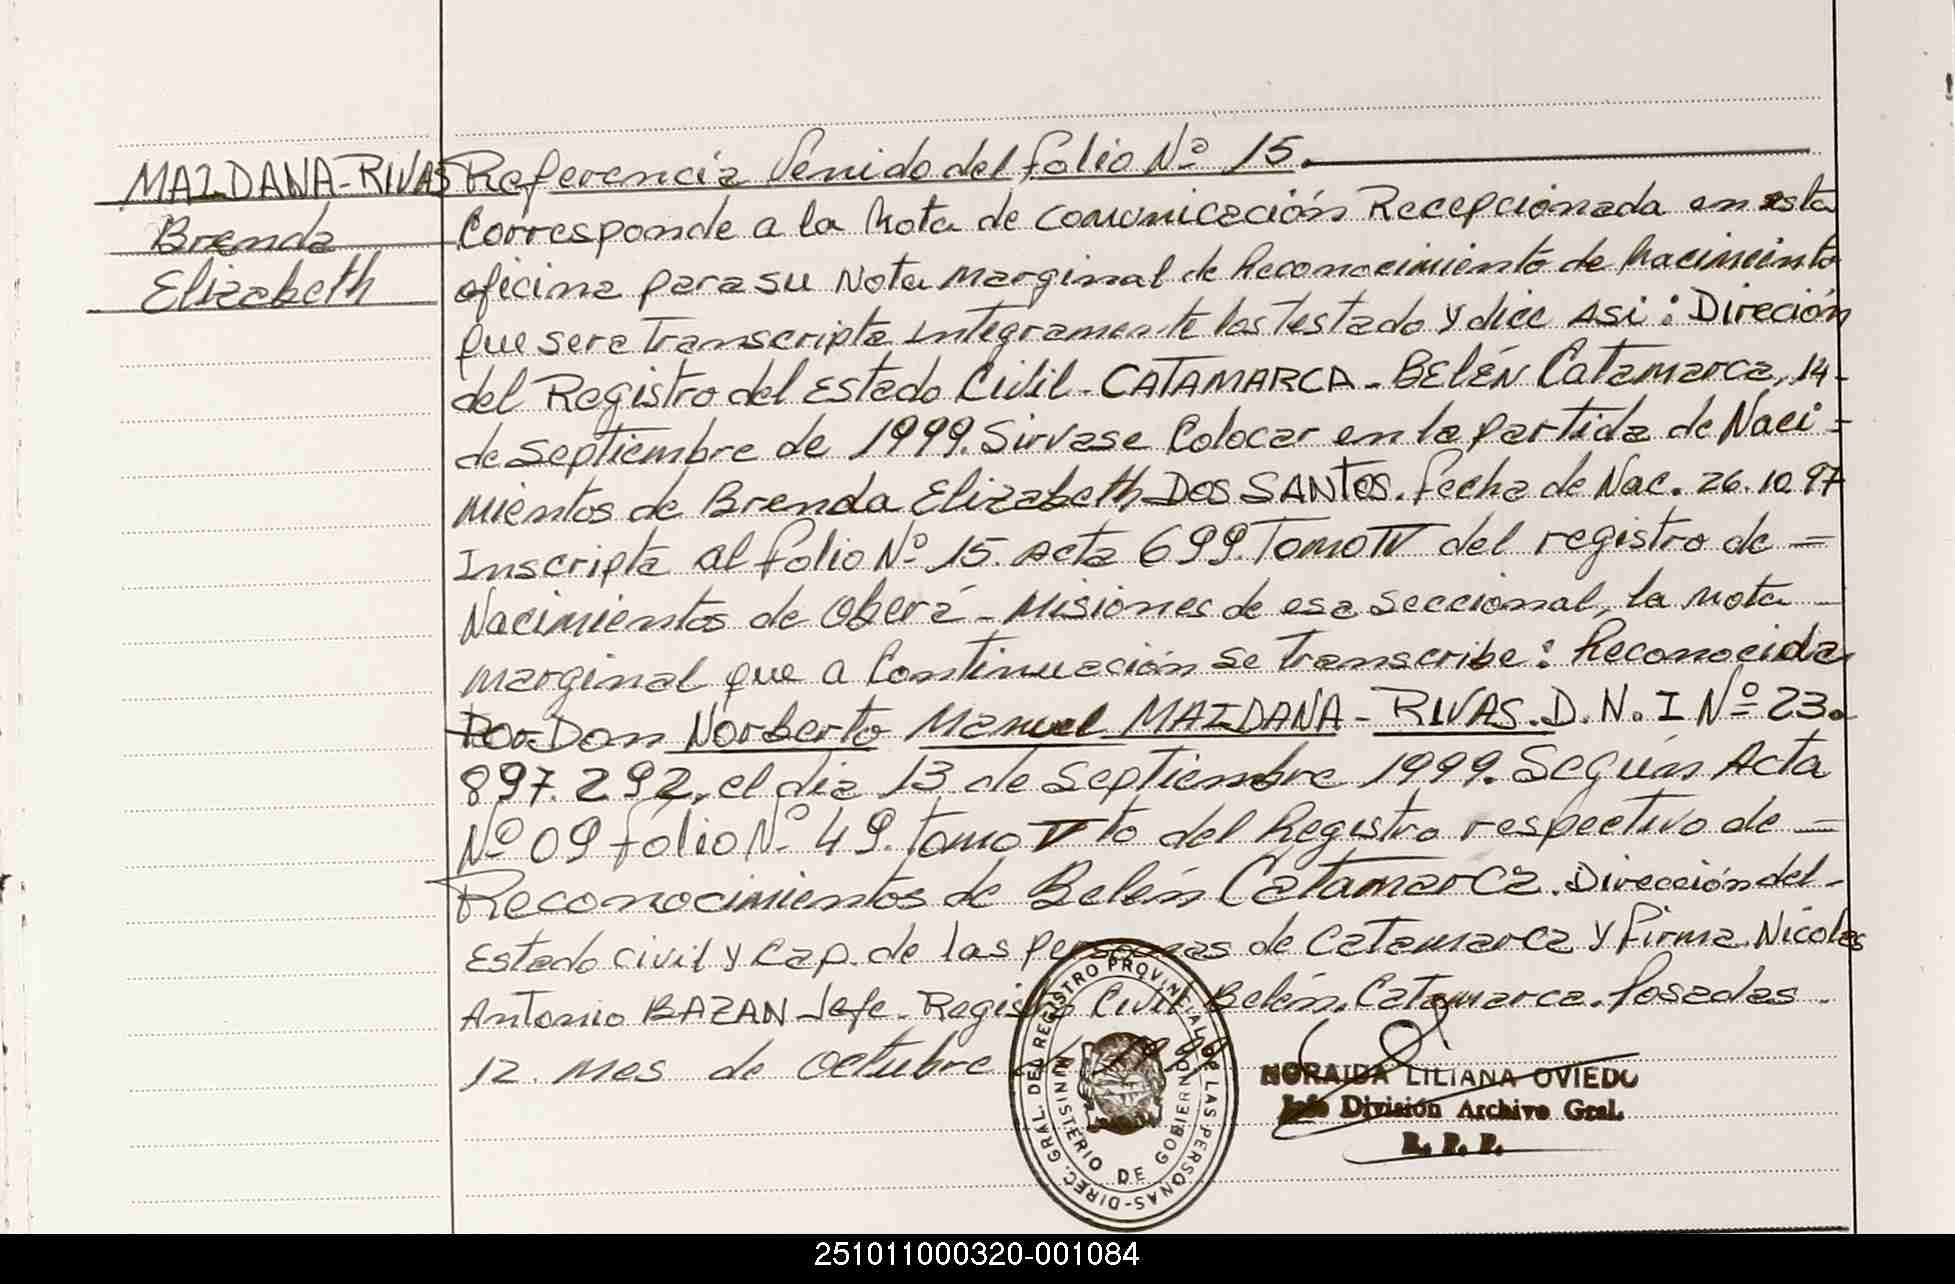 MAIDANA-RIVAS
Brenda
Elizabeth
Referencia Venido del folio Nº 15.
Corresponde a la Nota de comunicación Recepcionada en esta
oficina para su Nota Marginal de Reconocimiento de Nacimiento
que sera Transcripta integramente los testado y dice Asi: Direción
del Registro del Estado Civil - CATAMARCA - BELÉN Catamarca, 14-
de septiembre de 1999. Sirvase Colocar en la partida de Naci=
mientos de Brenda Elizabeth DOS SANTOS. Fecha de Nac. 26.10.97
Inscripta al folio Nº 15. Acta 699. Tomo IV del registro de =
Nacimientos de Oberá - Misiones de esa seccional, la nota -
marginal que a Continuación se Transcribe: Reconocida
Por Don Norberto Manuel MAIDANA - RIVAS. D.N.I Nº 23.
897.292, el dia 13 de Septiembre 1999. Según Acta
Nº 09 folio Nº 49. Tomo to del Registro respectivo de =
Reconocimientos de Belén Catamarca. Dirección del -
Estado civil y Cap. de las personas de Catamarca y firma. Nicolas
Antonio BAZAN Jefe - Registro Civil. Belén. Catamarca. Posadas -
12. mes de octubre
DIREC. GRAL. DEL REGISTRO PROVINCIAL DE LAS PERSONAS-
MINISTERIO DE GOBIERNO
NORAIDA LILIANA OVIEDO
Jefe División Archivo Gral.
R. P. P.
251011000320-001084